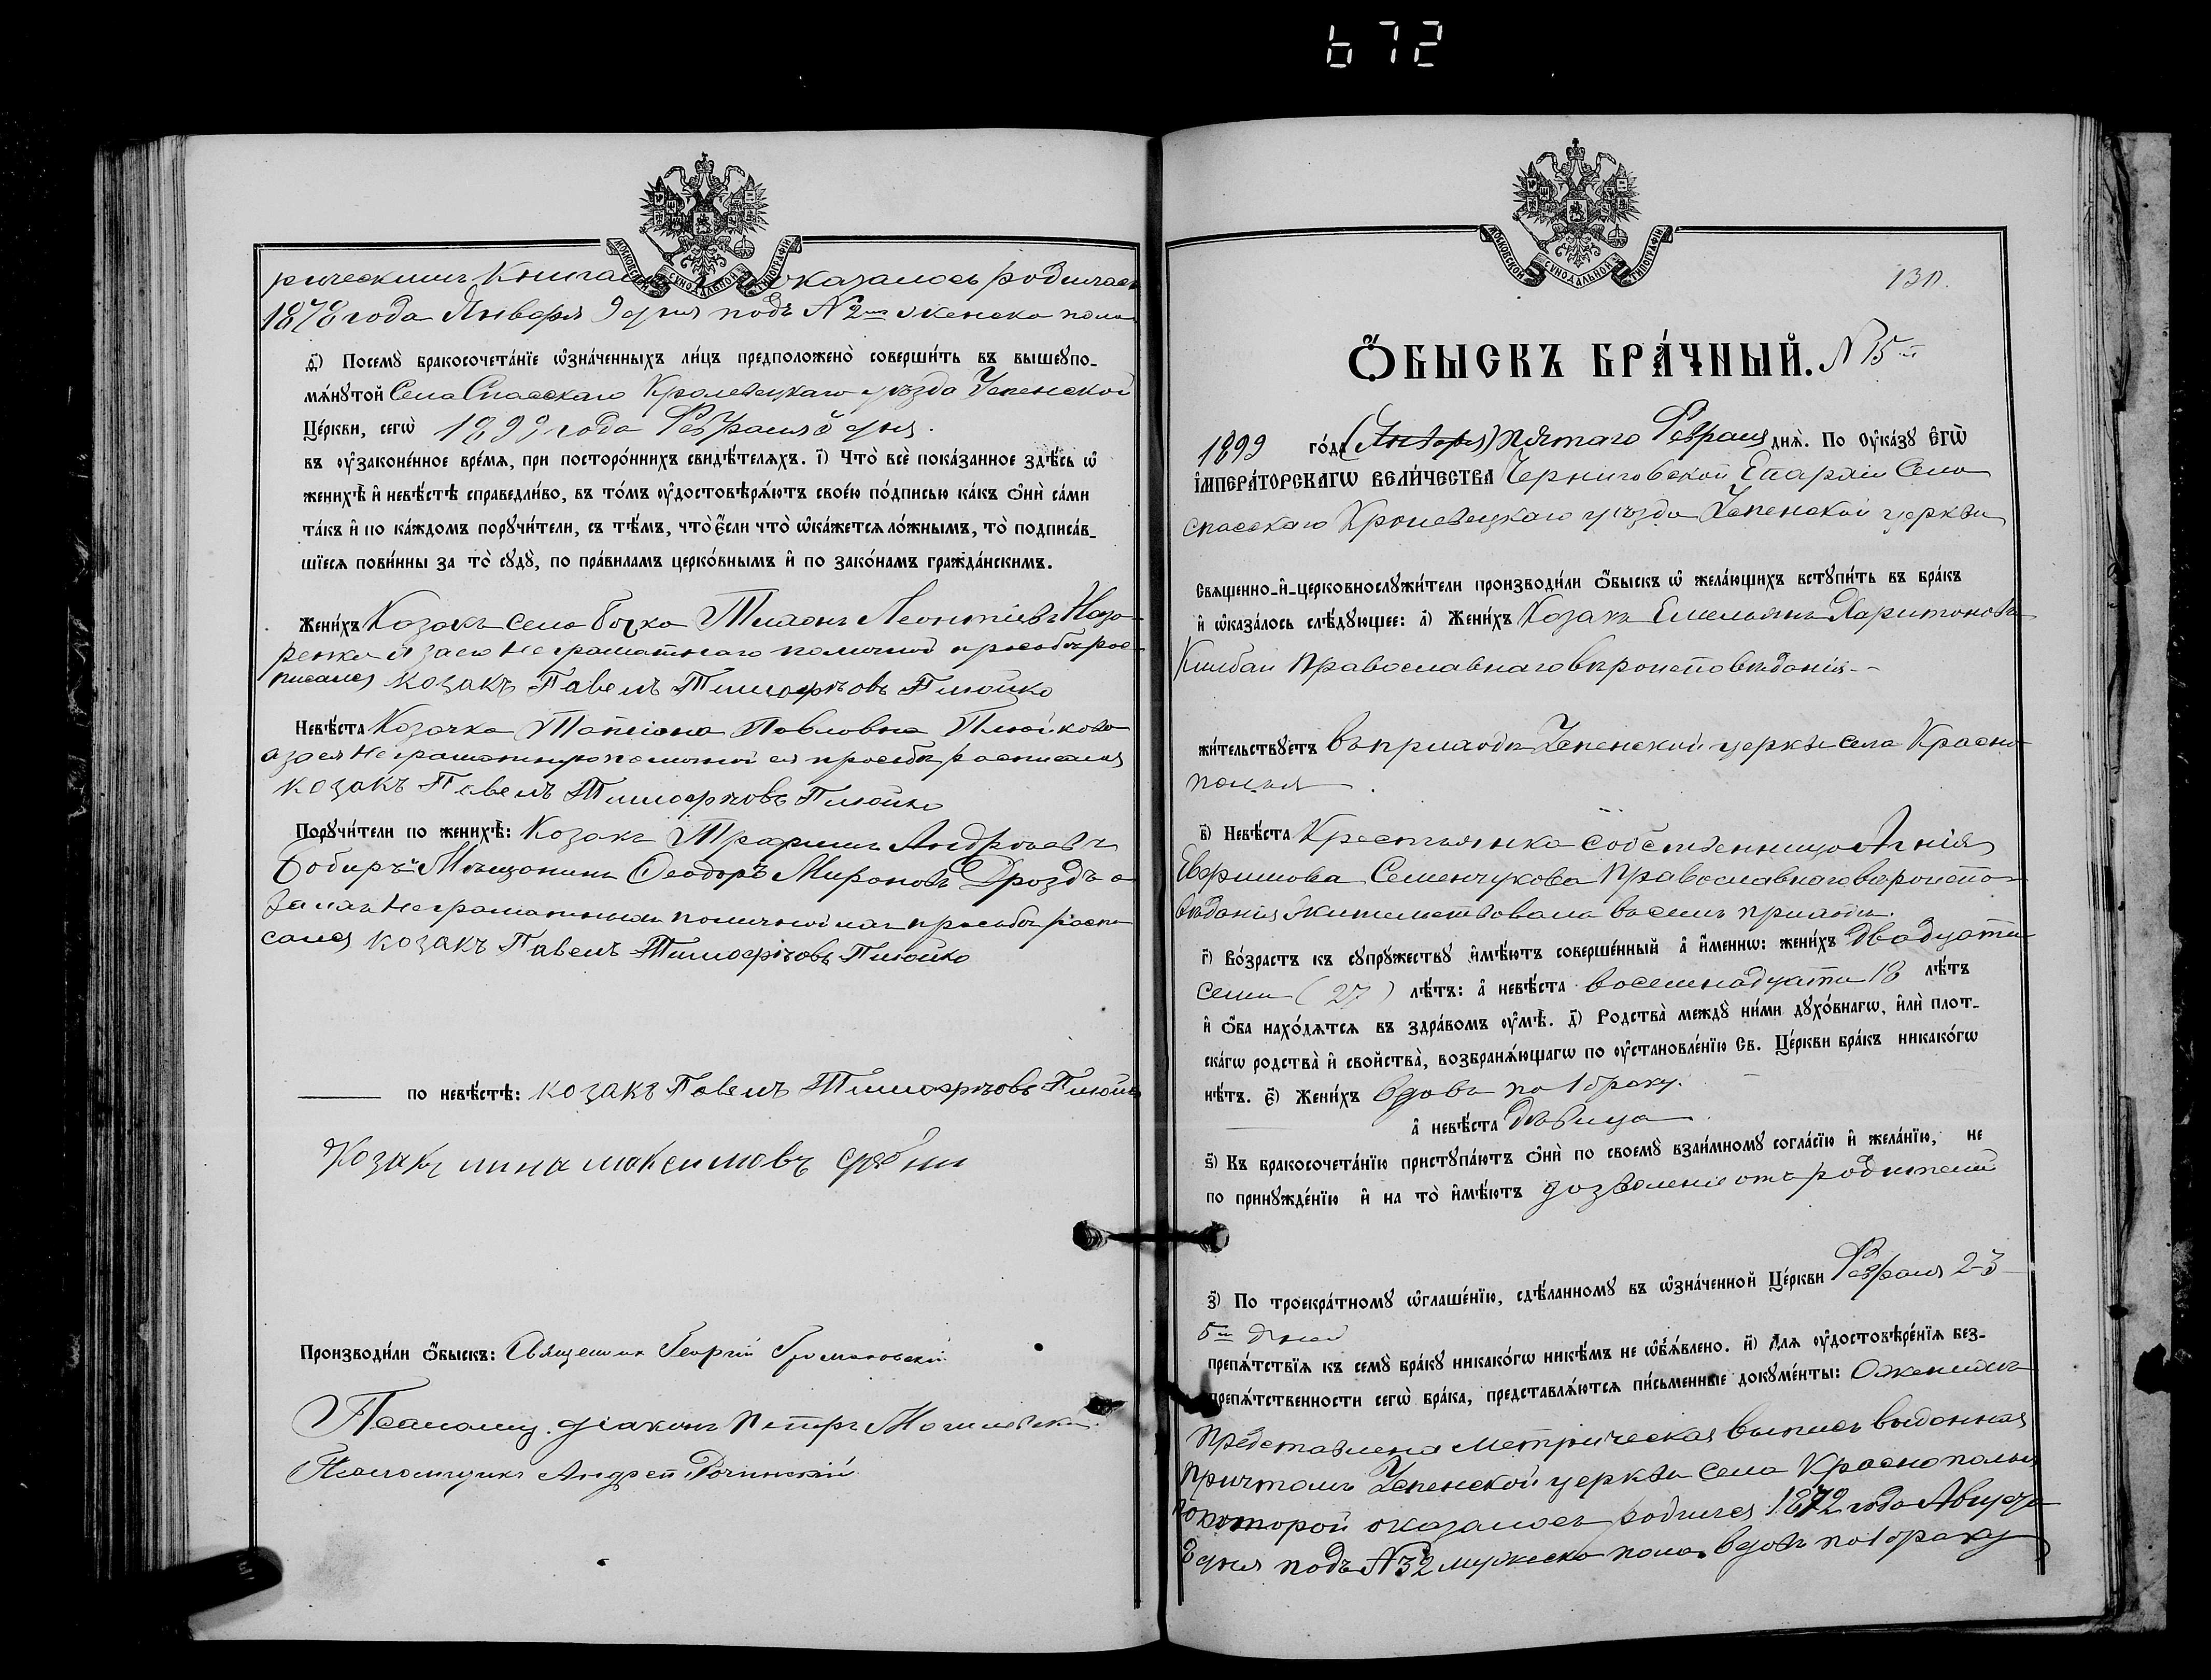 672
МОСКОВСКОЙ СѴНОДАЛЬНОЙ ТИПОГРАФІИ
рическимъ Книгамъ оказалось родилась
1878 года Января 9 дня подъ N 2мъ женска пола
ѳ҃) Посемꙋ̀ бракосочета́нїе ѡ҆зна́ченныхъ ли́цъ предположено̀ соверши́ть въ вышеꙋпо-
мѧ́нꙋтой Села Спасскаго Кролевецкаго уѣзда Успенской
Це́ркви, сегѡ̀ 1899 года Февраля дня.
въ ᲂу҆законе́нное вре́мѧ, при посторо́ннихъ свидѣ́телѧхъ. і҃) Что̀ всѐ пока́занное здѣ́сь ѡ҆
женихѣ̀ и҆ невѣ́стѣ справедли́во, въ то́мъ ᲂу҆достовѣрѧ́ютъ свое́ю по́дписью ка́къ ѻ҆нѝ са́ми
та́къ и҆ по ка́ждомъ порꙋчи́тели, съ тѣ́мъ, что̀ є҆́сли что̀ ѡ҆ка́жетсѧ ло́жнымъ, то̀ подписа́в-
шїесѧ пови́нны за то̀ сꙋдꙋ̀, по пра́виламъ церко́внымъ и҆ по зако́намъ гражда́нскимъ.
Жени́хъ Козакъ села Тихонъ Леонтіевъ Назо-
ренко а за его неграматнаго по личной просьбѣ рос-
писался козакъ Павелъ Тимофѣевъ Плюйко
Невѣ́ста Козачка Татіана Павловна Плюйкова
а за ея неграматную по личной ея просьбѣ росписался
козакъ Павелъ Тимофѣевъ Плюйко
Порꙋчи́тели по женихѣ̀: Козакъ Трофимъ Андреевъ
Бобиръ Мѣщанинъ Ѳеодоръ Мироновъ Дроздъ а
за нихъ неграматныхъ по личной ихъ просьбѣ роспи
сался козакъ Павелъ Тимофѣевъ Плюйко
по невѣ́стѣ: козакъ Павелъ Тимофѣевъ Плюйко
Козакъ мина максимовъ
Производи́ли ѻ҆́быскъ: Священникъ Георгій
Псаломщ. діаконъ Петръ
Псаломщикъ Андрей
МОСКОВСКОЙ СѴНОДАЛЬНОЙ ТИПОГРАФІИ
130.
Ѻ҆́БЫСКЪ БРА́ЧНЫЙ. N 5й
1899 го́да (Января) пятаго Февраля днѧ̀. По ᲂу҆ка́зꙋ Є҆ГѠ̀
І҆МПЕРА́ТОРСКАГѠ ВЕЛИ́ЧЕСТВА Черниговской Епархіи Села
Спасскаго Кролевецкаго уѣзда Успенской церкви
Свѧще́нно-и҆-церковнослꙋжи́тели производи́ли ѻ҆́быскъ ѡ҆ жела́ющихъ встꙋпи́ть въ бра́къ
и҆ ѡ҆каза́лось слѣ́дꙋющее: а҃) Жени́хъ Козакъ Емельянъ Харитоновъ
православнаго вѣроисповѣданія--
жи́тельствꙋетъ въ приходѣ Успенской церкви села Красно
полья
в҃) Невѣ́ста Крестьянка собственница Агнія
Евфимова Семенчукова Православнаго вѣроиспо-
вѣданія жительствовала въ семъ приходѣ.
г҃) Во́зрастъ къ сꙋпрꙋ́жествꙋ и҆мѣ́ютъ соверше́нный а҆ и҆́меннѡ: жени́хъ двадцати
семи (27) лѣ́тъ: а҆ невѣ́ста восемнадцати 18 лѣ́тъ
и҆ ѻ҆́ба нахо́дѧтсѧ въ здра́вомъ ᲂу҆мѣ̀. д҃) Родства̀ междꙋ̀ ни́ми дꙋхо́внагѡ, и҆лѝ плот-
ска́гѡ родства̀ и҆ сво́йства̀, возбранѧ́ющагѡ по ᲂу҆становле́нїю Св. Це́ркви бра́къ никако́гѡ
нѣ́тъ. є҃) Жени́хъ вдовъ по 1 браку.
а҆ невѣ́ста дѣвица
ѕ҃) Къ бракосочета́нїю пристꙋпа́ютъ ѻ҆нѝ по своемꙋ̀ взаи́мномꙋ согла́сїю и҆ жела́нїю, не
по принꙋжде́нїю и҆ на то̀ и҆мѣ́ютъ дозволеніе отъ родителей
з҃) По троекра́тномꙋ ѡ҆глаше́нїю, сдѣ́ланномꙋ въ ѡ҆зна́ченной Це́ркви Февраля 2-3
5го дней
препѧ́тствїѧ къ семꙋ̀ бра́кꙋ никако́гѡ никѣ́мъ не ѡ҆б̾ѧ́влено. и҃) Длѧ ᲂу҆достовѣре́нїѧ без-
препѧ́тственности сегѡ̀ бра́ка, представлѧ́ютсѧ пи́сьменные докꙋме́нты: О женихѣ
представлена метрическая выпись выданная
причтомъ Успенской церкви села Краснополья
по которой оказалось родился 1872 года Августа
8 дня подъ N 32 мужеска пола. вдовъ по 1 браку